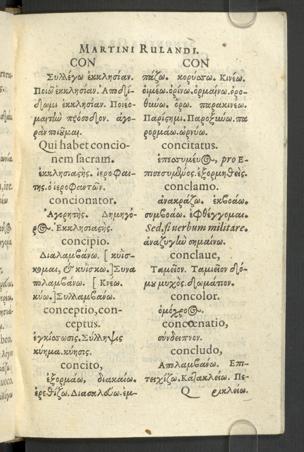 MARTINI RULANDI.
CON
Συλλέγω ἐκκλησίαν.
Ποιῶ ἐκκλησίαν. Ἀποδί-
δωμι ἐκκλησίαν. Ποιέο-
μαι πρόσοδον. ἀγο-
Qui habet concio-
nem sacram.
ἐκκλησιαςὴς. ἱεροφαι-
της. ὁ ἱεροφαντῶν.
concionator.
Ἀγορητὴς. Δημηγό-
ρος. Ἐκκλησιαςὴς.
concipio.
Διαλαμβάνω. [κυΐσ-
κομαι, & κυΐσκω.] Συνα
πολαμβάνω. [Κυεω.
κυω.] Συλλαμβάνω.
conceptio, con-
ceptus.
ἐγκίσσωσις. Σύλληψις
κύημα. κύησις.
concito,
ἐξορμάω, διακαίω.
ἐρεθίζω. Διασκλύω. ἐμ-
CON
πάζω. κορύσσω. Κινέω.
ὀρίνω. ὁρμαίνω. ὀρο-
θύνω. ὄρω. παρακινέω.
Παρίημι. Παροξύνω. πα
ρορμάω. ὠρνύω.
concitatus.
ἐπισσυμένος, pro E-
πισεσυμένος. ἐξορμηθείς.
conclamo.
ἀνακράζω. ἐκβοάω.
συμβοάω. ἐφθέγγομαι.
Sed, si verbum militare.
ἀναζυγὴν σημαίνω.
conclaue,
Ταμεῖον. Ταμιεῖον δό-
μυ μυχὸς. δωμάτιον.
concolor.
ὁμόχρους.
concœnatio,
σύνδειπνον.
concludo,
Ἀπολαμβάνω. Ἐπι-
τειχίζω. Κατακλείω. Πε-
Q ρικλείω.